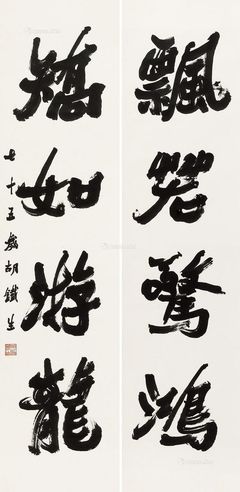 飄若驚鴻
矯如游龍
七十五歲胡鐵生